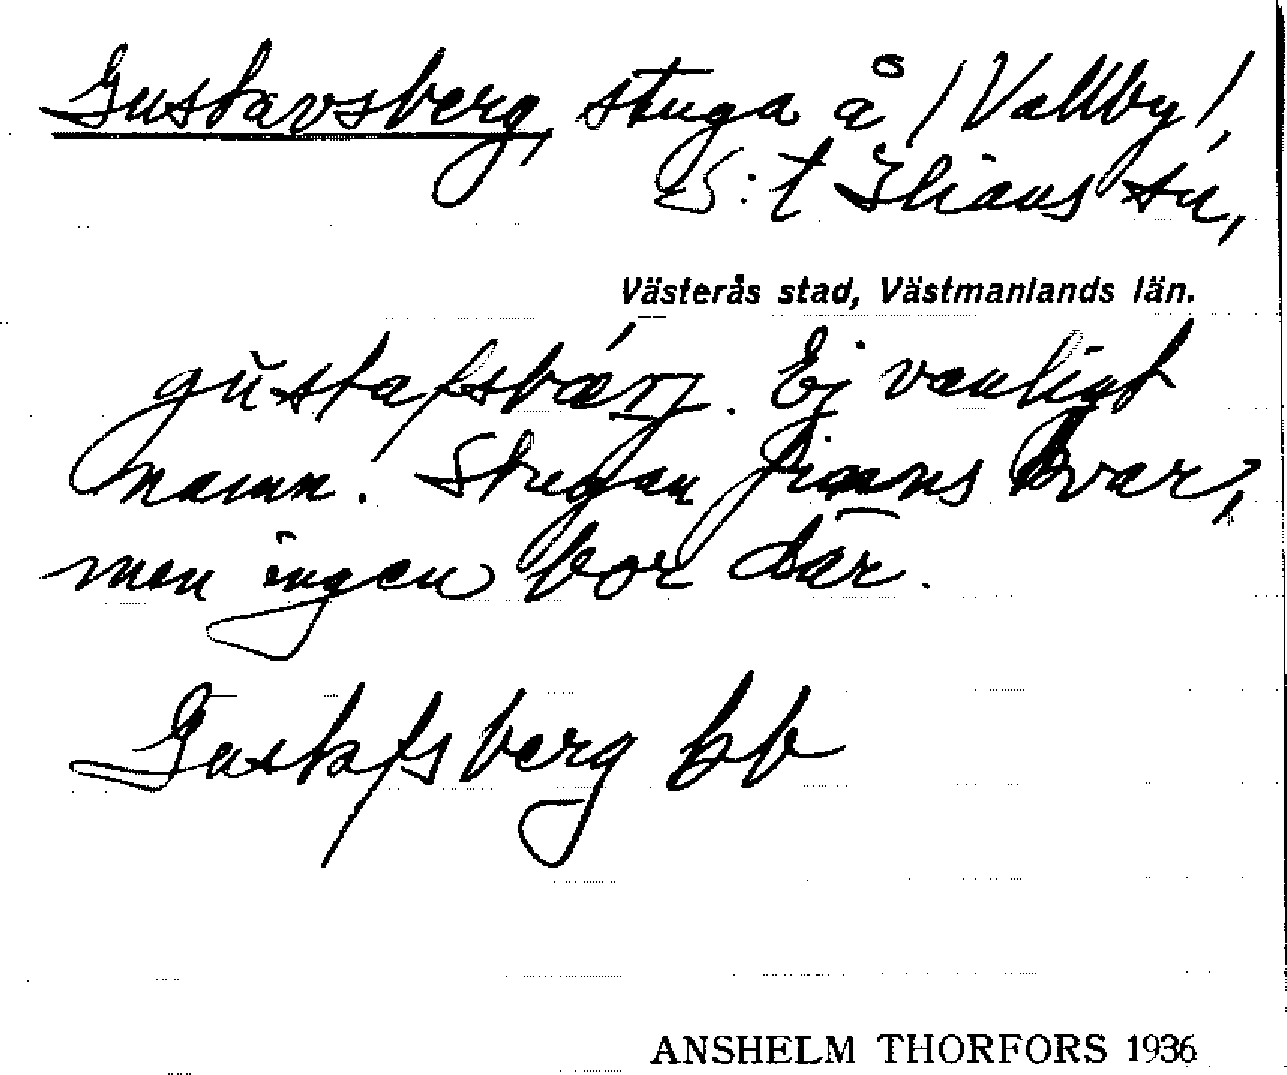 Gustavsberg, stuga å /Vallby/,
S:t Ilians sn,
Västerås stad, Västmanlands län.
gustafsbärj. Ej vanligt
namn. Stugan finns kvar,
men ingen bor där.
Gustafsberg bb
ANSHELM THORFORS 1936